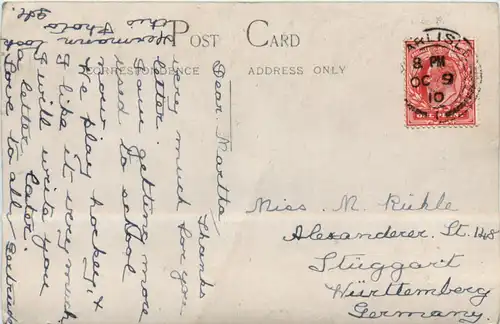 POST CARD
CORRESPONDENCE
ADDRESS ONLY
CARLISLE
8 PM
OC 9
10
Dear Martha,
Thanks
very much for your
letter.
I am getting more
used to school
now.
We play hockey &
I like it very much
I will write you
a letter later.
Love to all
Gertrude
Hermann took
this photo
Miss. M. Rühle
Alexanderer. St. 148
Stüggart
Württemberg
Germany.